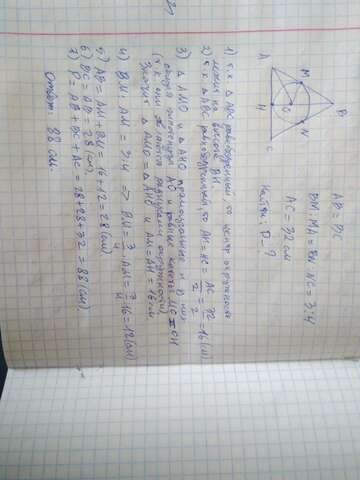 A
M
B
O
N
H
C
AB = BC
BM : MA = BN : NC = 3:4
AC = 32 см
Найти P - ?
1) т.к. △ ABC равнобедренный, то центр окружности
лежит на высоте BH.
2) т.к. △ ABC равнобедренный, то AH = HC = AC/2 = 32/2 = 16 (см)
3) △ AMO и △ AHO прямоугольные и в них
общая гипотенуза AO и равные катеты MO = OH
(т.к. они являются радиусами окружности)
Значит △ AMO = △ AHO и AM = AH = 16 см
4) BM : AM = 3:4 => BM = 3/4 · AM = 3/4 · 16 = 12 (см)
5) AB = AM + BM = 16 + 12 = 28 (см)
6) BC = AB = 28 (см)
7) P = AB + BC + AC = 28 + 28 + 32 = 88 (см)
Ответ: 88 см.